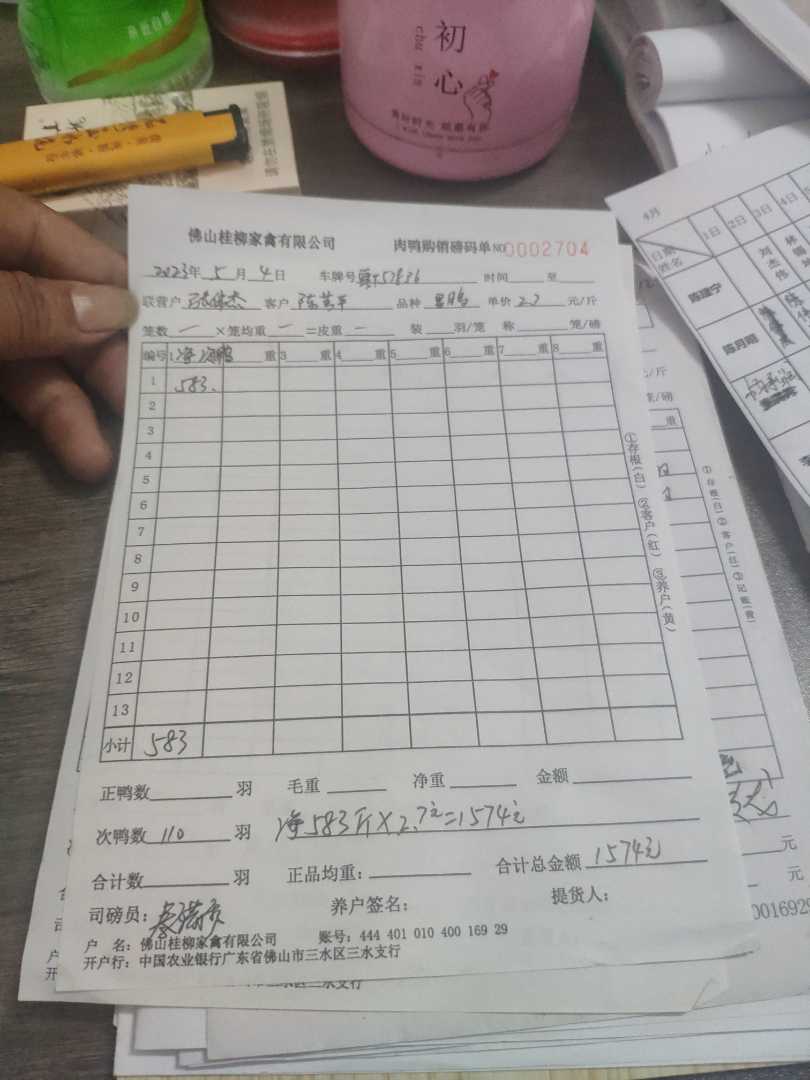 初心
chu xin
佛山桂柳家禽有限公司 肉鸭购销磅码单 NO 0002704
2023年 5月 4日 车牌号 时间 至
联营户 客户 品种 单价 2.7 元/斤
笼数 一 ×笼均重 一 =皮重 一 装 羽/笼 称 笼/磅
编号 1 重 2 重 3 重 4 重 5 重 6 重 7 重 8 重
1 583.
2
3
4
5
6
7
8
9
10
11
12
13
小计 583
①存根(白) ②客户(红) ③养户(黄)
正鸭数 羽 毛重 净重 金额
次鸭数 110 羽 净583斤×2.7元=1574元
合计数 羽 正品均重: 合计总金额 1574元
司磅员: 养户签名: 提货人:
户 名: 佛山桂柳家禽有限公司 账号: 444 401 010 400 169 29
开户行: 中国农业银行广东省佛山市三水区三水支行
4月
日期 姓名 1日 2日 3日 4日
陈建宁 刘杰伟
陈月明
①存根(白) ②客户(红) ③记账(黄)
元
元
0016929